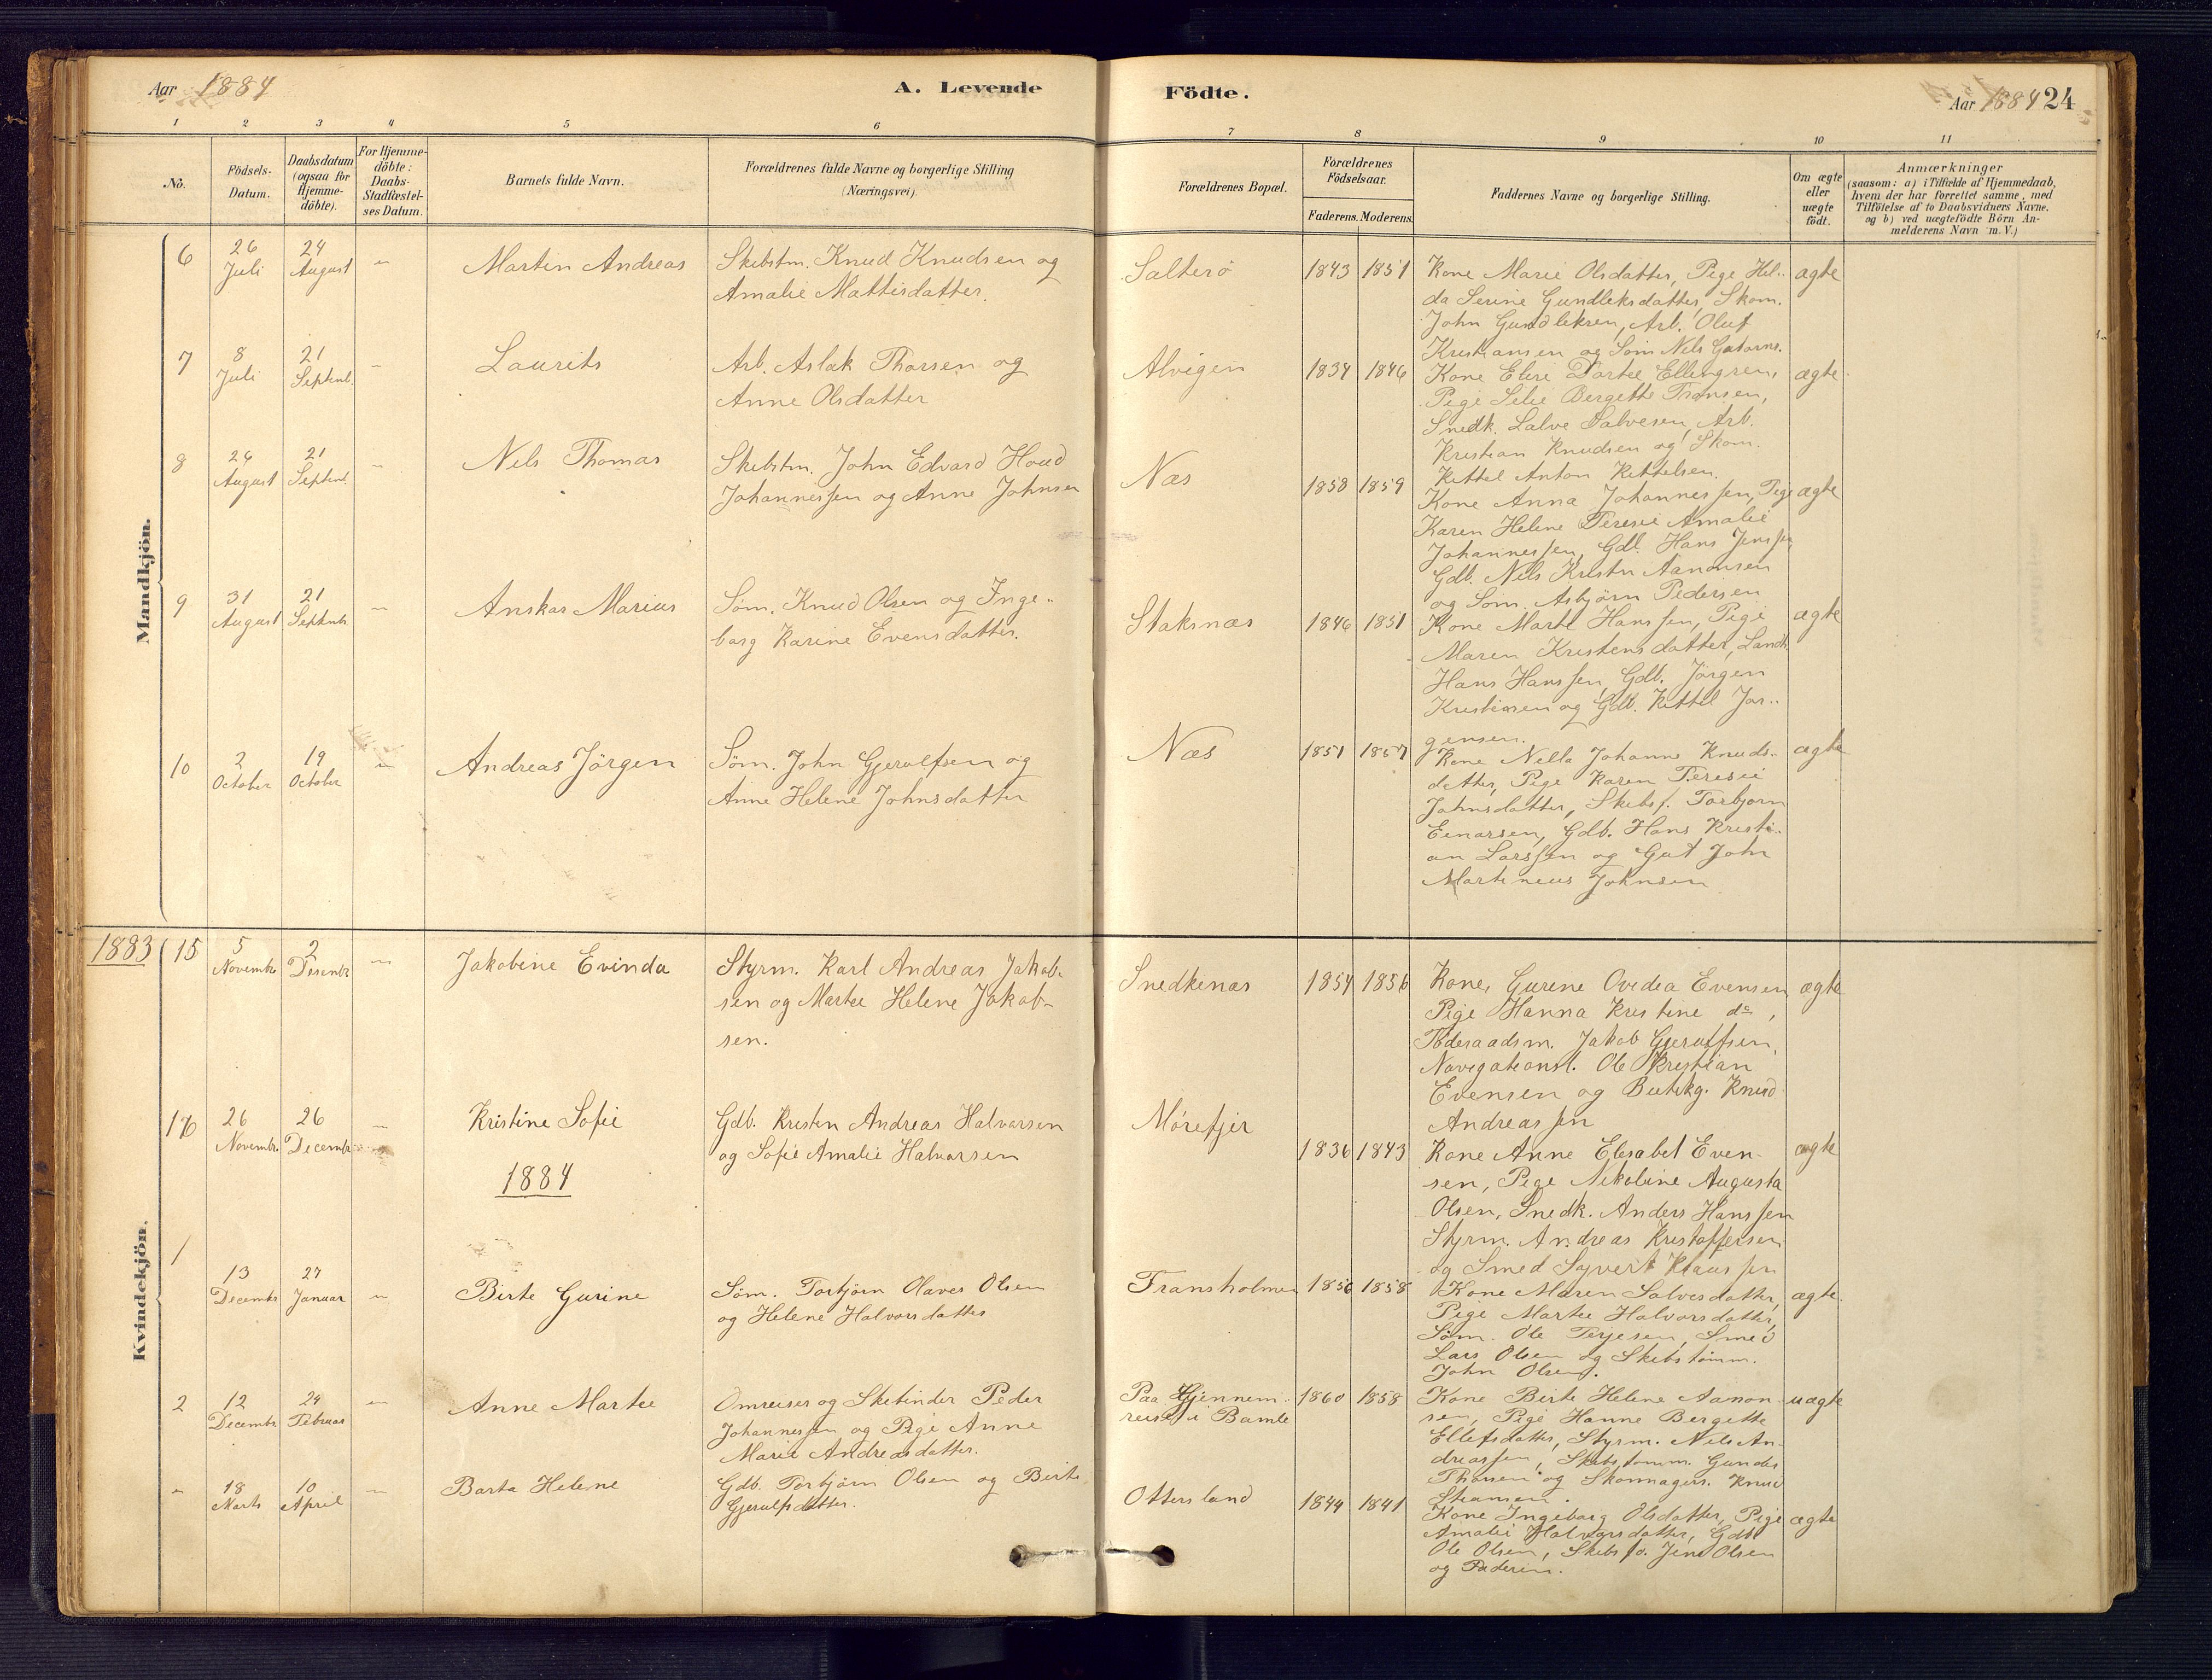 Aar 1884
A. Levende
Födte.
Aar 1884 24
1 2 3 4 5 6 7 8 9 10 11
No.
Födsels-
Datum.
Daabsdatum
(ogsaa for
Hjemme-
döbte).
For Hjemme-
döbte:
Daabs-
Stadfæstel-
ses Datum.
Barnets fulde Navn.
Forældrenes fulde Navne og borgerlige Stilling
(Næringsvei)
Forældrenes Bopæl.
Forældrenes
Födselsaar.
Faderens. Moderens.
Faddernes Navne og borgerlige Stilling.
Om ægte
eller
uægte
födt.
Anmærkninger
(saasom: a) i Tilfælde af Hjemmedaab,
hvem der har forrettet samme, med
Tilföielse af to Daabsvidners Navne.
og b) ved uægtefödte Börn An-
melderens Navn m. V.)
Mandkjön.
6
26
Juli
24
August
"
Martin Andreas
Skibstm. Knud Knudsen og
Amalie Mattisdatter.
Salterö
1843 1851
Kone Marie Olsdatter, Pige Hel-
da Serine Gundleksdatter, Skom.
John Gundleksen, Arb. Oluf
Kristiansen og Söm Nels
ægte
7
8
Juli
21
Septemb.
"
Laurits
Arb. Aslak Thorsen og
Anne Olsdatter
Alvigen
1834 1846
Kone Elise Dortee Ellingsen,
Pige Silie Bergette Fransen,
Snedk. Salve Salvesen, Arb.
Kristian Knudsen og Skom.
Kittel Anton Kittelsen.
ægte
8
24
August
21
Septemb.
"
Nils Thomas
Skibstm. John Edvard Houd
Johannessen og Anne Johnsen
Næs
1858 1859
Kone Anna Johannessen, Pige
Karen Helene Teresie Amalie
Johannessen, Gdb. Hans Jenssen
Gdb. Nils Kristn Aanonsen
og Söm. Asbjörn Pedersen
ægte
9
31
August
21
Septemb.
"
Anskar Marius
Söm. Knud Olsen og Inge-
borg Karine Evensdatter.
Staksnæs
1846 1851
Kone Marte Hanssen, Pige
Maren Kristensdatter, Landh.
Hans Hanssen, Gdb. Jörgen
Kristiansen og Gdb. Kittel Jör-
gensen.
ægte
10
2
October
19
October
"
Andreas Jörgen
Söm. John Gjerulfsen og
Anne Helene Johnsdatter
Næs
1851 1857
Kone Nella Johanne Knuds-
datter, Pige Karen Teresie
Johnsdatter, Skibsf. Torbjörn
Einarsen, Gdb. Hans Kristi-
an Larssen og Gut John
Martineus Johnsen
ægte
Kvindekjön.
1883
15
5
Novembr
2
Desembr
"
Jakobine Evinda
Styrm. Karl Andreas Jakob-
sen og Martee Helene Jakob-
sen.
Snedkenæs
1854 1856
Kone Gurine Ovidia Evensen,
Pige Hanna Kristine do,
Föderaadsm. Jakob Gjerulfsen,
Navigationsl. Ole Kristian
Evensen og Butikg. Knud
Andreassen
ægte
16
26
Novembr.
26
Decembr
"
Kristine Sofie
Gdb. Kristen Andreas Halvorsen
og Sofie Amalie Halvorsen
Mörefjer
1836 1843
Kone Anne Elisabet Even-
sen, Pige Nikoline Augusta
Olsen, Snedk. Anders Hanssen
Styrm. Andreas Kristoffersen
og Smed Syvert Klaussen
ægte
1884
1
13
Decembr
27
Januar
"
Birte Gurine
Söm. Torbjörn Olaves Olsen
og Helene Halvorsdatter
Fransholmen
1856 1858
Kone Maren Salvesdatter,
Pige Martee Halvorsdatter,
Söm. Ole Terjesen, Smed
Lars Olsen og Skibstömm.
John Olsen.
ægte.
2
12
Decembr
24
Februar
"
Anne Martee
Omreiser og Skebinder Peder
Johannessen og Pige Anne
Marie Andreasdatter.
Paa Gjennem-
reise i Bamle
1860 1858
Kone Birte Helene Aanon-
sen, Pige Hanne Bergette
Ellefsdatter, Styrm. Nils An-
dreassen, Skibstömm. Gunder
Thorsen og Skomagers. Knud
uægte
"
18
Marts
10
April
"
Barta Helene
Gdb. Torbjörn Olsen og Birte
Gjerulfsdatter.
Ottersland
1844 1841
Kone Ingeborg Olsdatter, Pige
Amalie Halvorsdatter, Gdb
Ole Olsen, Skibsfö. Jens Olsen
og Faderen.
ægte